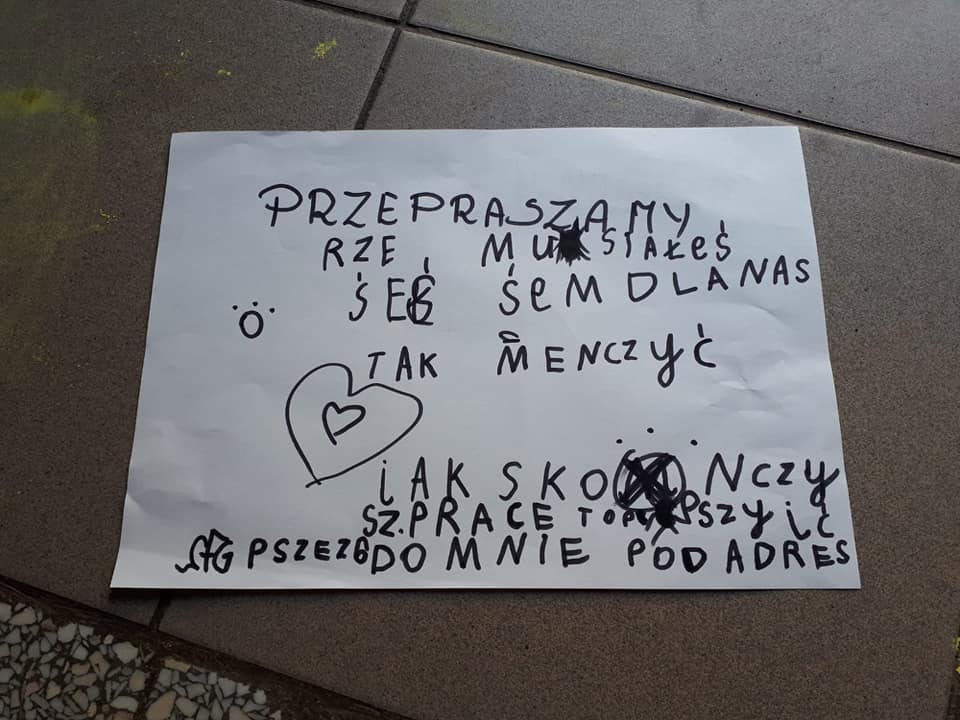 PRZEPRASZAMY
RZE MUSIAŁEŚ
ŚEŚ ŚEM DLA NAS
TAK MENCZYĆ
JAK SKONCZY
SZ. PRACE TO PSZYIĆ
DO MNIE POD ADRES